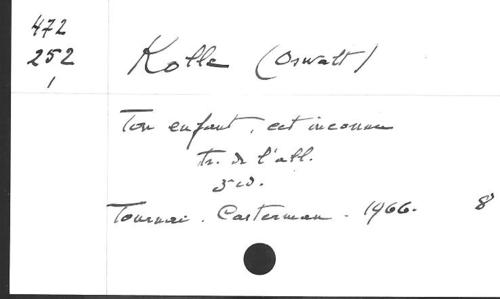 472
252
1
Kolle (Oswalt)
Ton enfant, cet inconnu
tr. de l'all.
3 id.
Tournai. Casterman. 1966. 8°